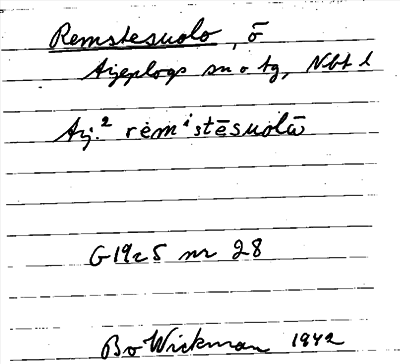 Remstesuolo, ö
Arjeplogs sn o tg, Nbt l
Arj.² rėmⁱstēsuolå̄
G 1925 nr 28
Bo Wickman 1942